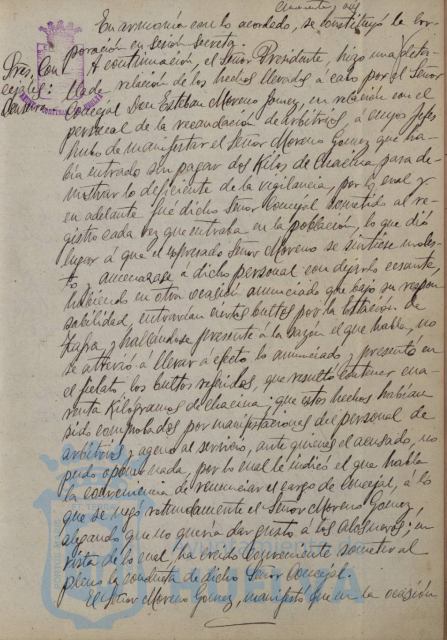 En armonía con lo acordado, se constituyó la Cor-
poración en Sesión Secreta.
A continuación, el Señor Presidente, hizo una deta-
llada relación de los hechos llevados a cabo por el Señor
Concejal Don Esteban Moreno Gomez, en relación con el
personal de la recaudación de arbitrios, a cuyos Jefes
hubo de manifestar el Señor Moreno Gomez que ha-
bía entrado sin pagar dos Kilos de Chacina para de-
mostrar lo deficiente de la vigilancia, por lo cual y
en adelante fué dicho Señor Concejal sometido al re-
gistro cada vez que entraba en la población, lo que dió
lugar á que el expresado Señor Moreno se sintiese moles-
to amenazase a dicho personal con dejarlo cesante,
habiendo en otra ocasión anunciado que bajo su respon-
sabilidad entrarían ciertos bultos por la Estación de
Zafra y hallándose presente á la sazón el que habla, no
se atrevió á llevar a efecto lo anunciado y presentó en
el fielato los bultos referidos, que resultó contener cua-
renta Kilogramos de chacina: que estos hechos habían
sido comprobados por manifestaciones del personal de
arbitrios y ageno al servicio, ante quienes el acusado, no
pudo oponer nada, por lo cual le indicó el que habla
la conveniencia de renunciar el cargo de Concejal, á lo
que se negó rotundamente el Señor Moreno Gomez
alegando que no quería dar gusto á los
vista de lo cual, ha creido conveniente someter al
pleno la conducta de dicho Señor Concejal.
El Señor Moreno Gomez, manifestó que en la ocasión